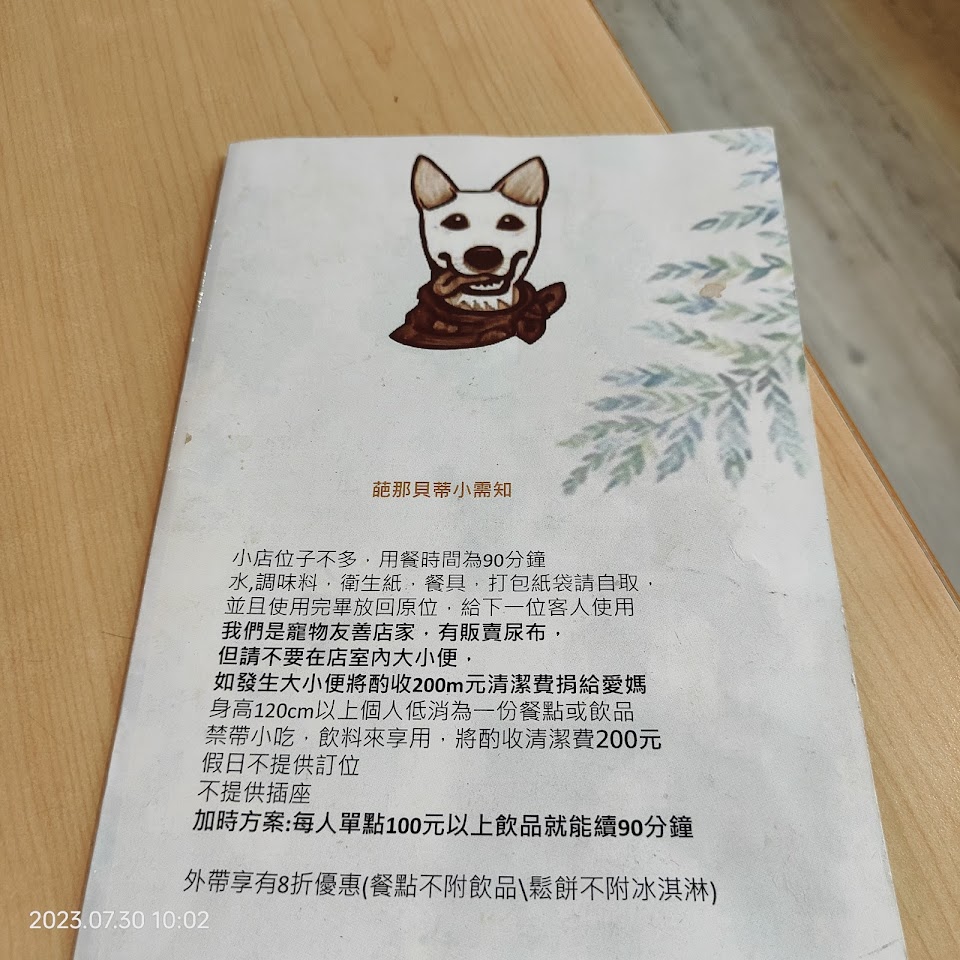 葩那貝蒂小需知
小店位子不多，用餐時間為90分鐘
水,調味料，衛生紙，餐具，打包紙袋請自取，
並且使用完畢放回原位，給下一位客人使用
我們是寵物友善店家，有販賣尿布，
但請不要在店室內大小便，
如發生大小便將酌收200m元清潔費捐給愛媽
身高120cm以上個人低消為一份餐點或飲品
禁帶小吃，飲料來享用，將酌收清潔費200元
假日不提供訂位
不提供插座
加時方案:每人單點100元以上飲品就能續90分鐘
外帶享有8折優惠(餐點不附飲品\鬆餅不附冰淇淋)
2023.07.30 10:02